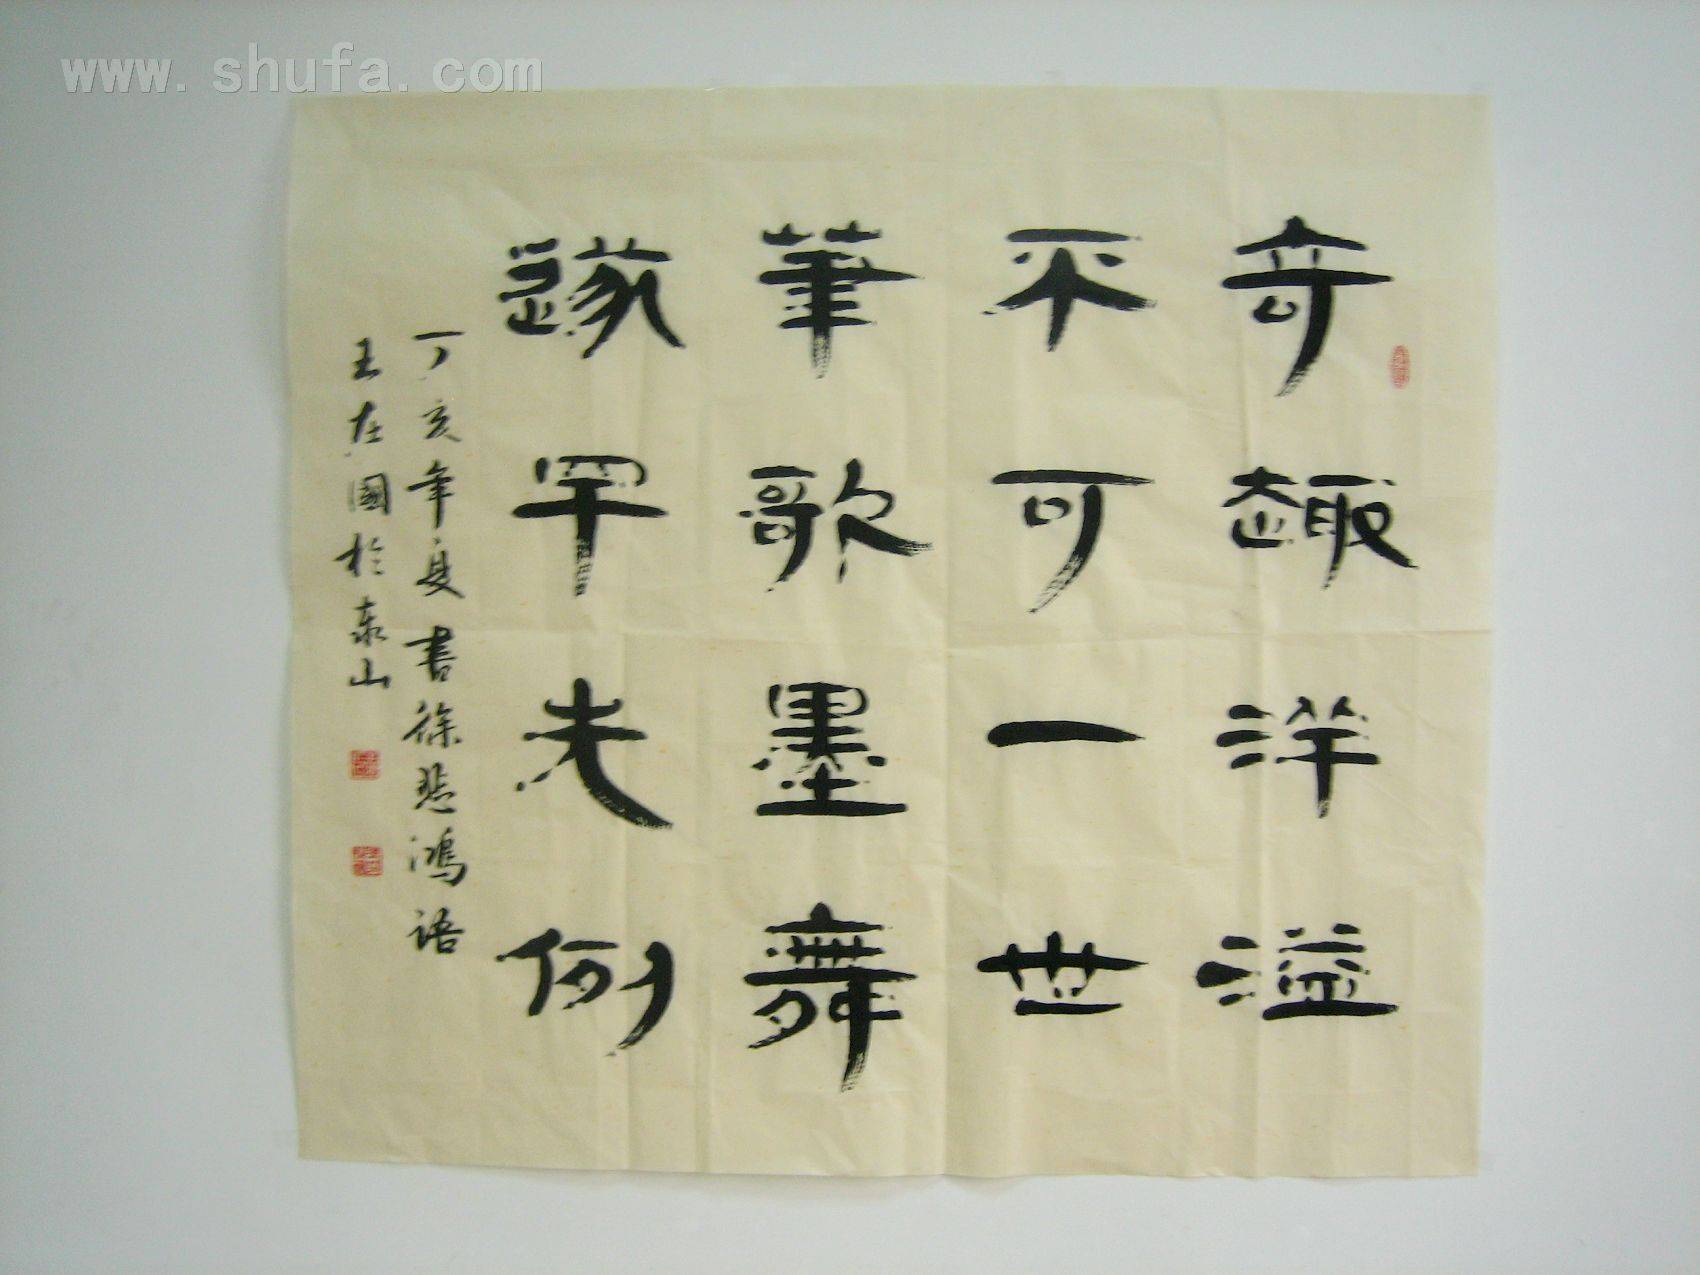 www.shufa.com
奇趣洋溢
不可一世
筆歌墨舞
遂罕先例
丁亥年夏書徐悲鴻語
王在國於泰山